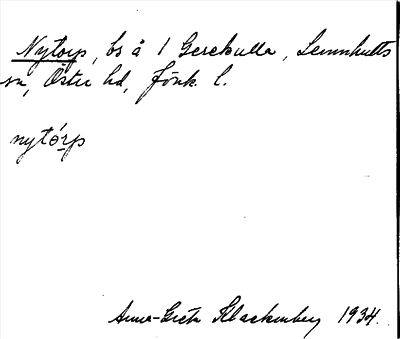 Nytorp, bs å 1 Gerekulla, Lemnhults
sn, Östra hd, Jönk. l.
nytórp
Anna-Greta Klackenberg 1934.